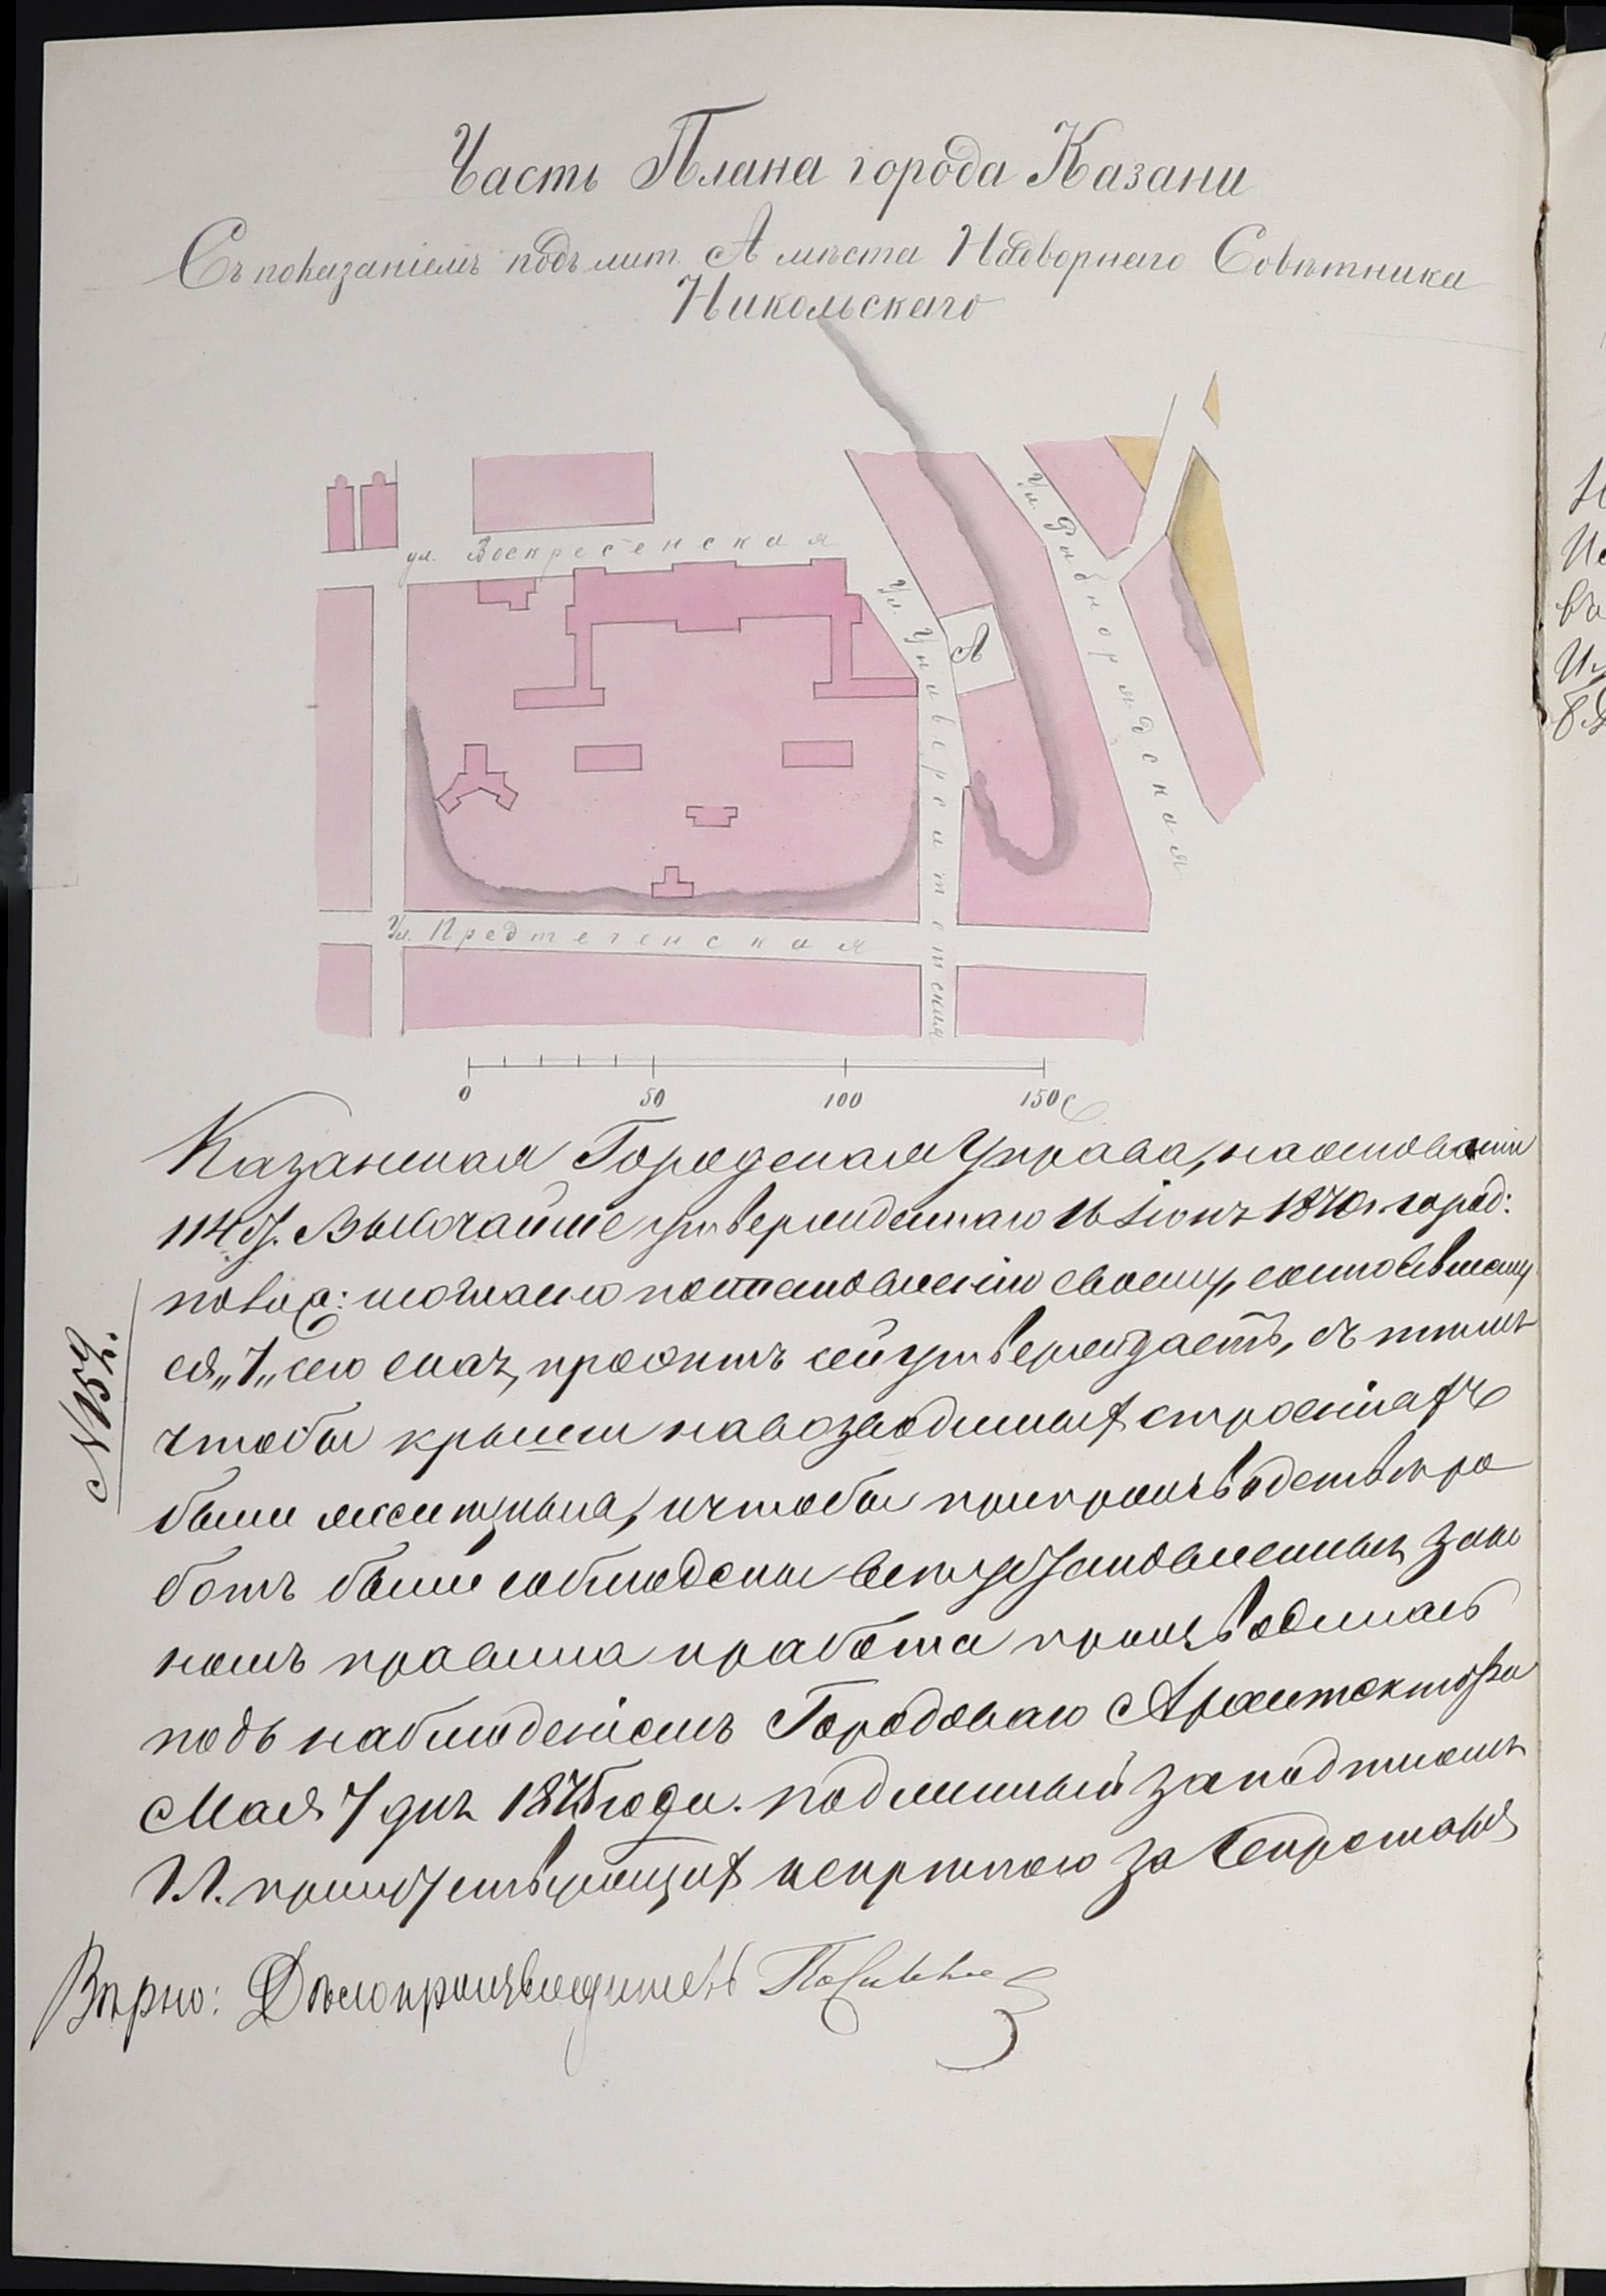 Часть Плана города Казани
Съ показаніемъ подъ лит. А мѣста Надворнаго Совѣтника
Никольскаго
ул. Воскресенская
Ул. Рыбнорядская
Ул. Университетская
А
Ул. Предтеченская
0 50 100 150 С
Казанская Городская Управа, на основаніи
114 ст. Высочайше утвержденнаго 16 Іюня 1870 г. город:
полож: согласно постановленію своему, состоявшему
ся „7„ сего мая, проэктъ сей утверждаетъ, съ тѣмъ
чтобы крыши на возводимыхъ строеніяхъ
были желѣзныя, и чтобы при производствѣ ра
ботъ были соблюдены всѣ установленныя зако
номъ правила и работа производилась
подъ наблюденіемъ Городоваго Архитектора
Мая 7 дня 1875 года. подлинный за подписомъ
Г.г. присутствующихъ и скрѣпою за Секретаря
№ 152.
Вѣрно: Дѣлопроизводитель